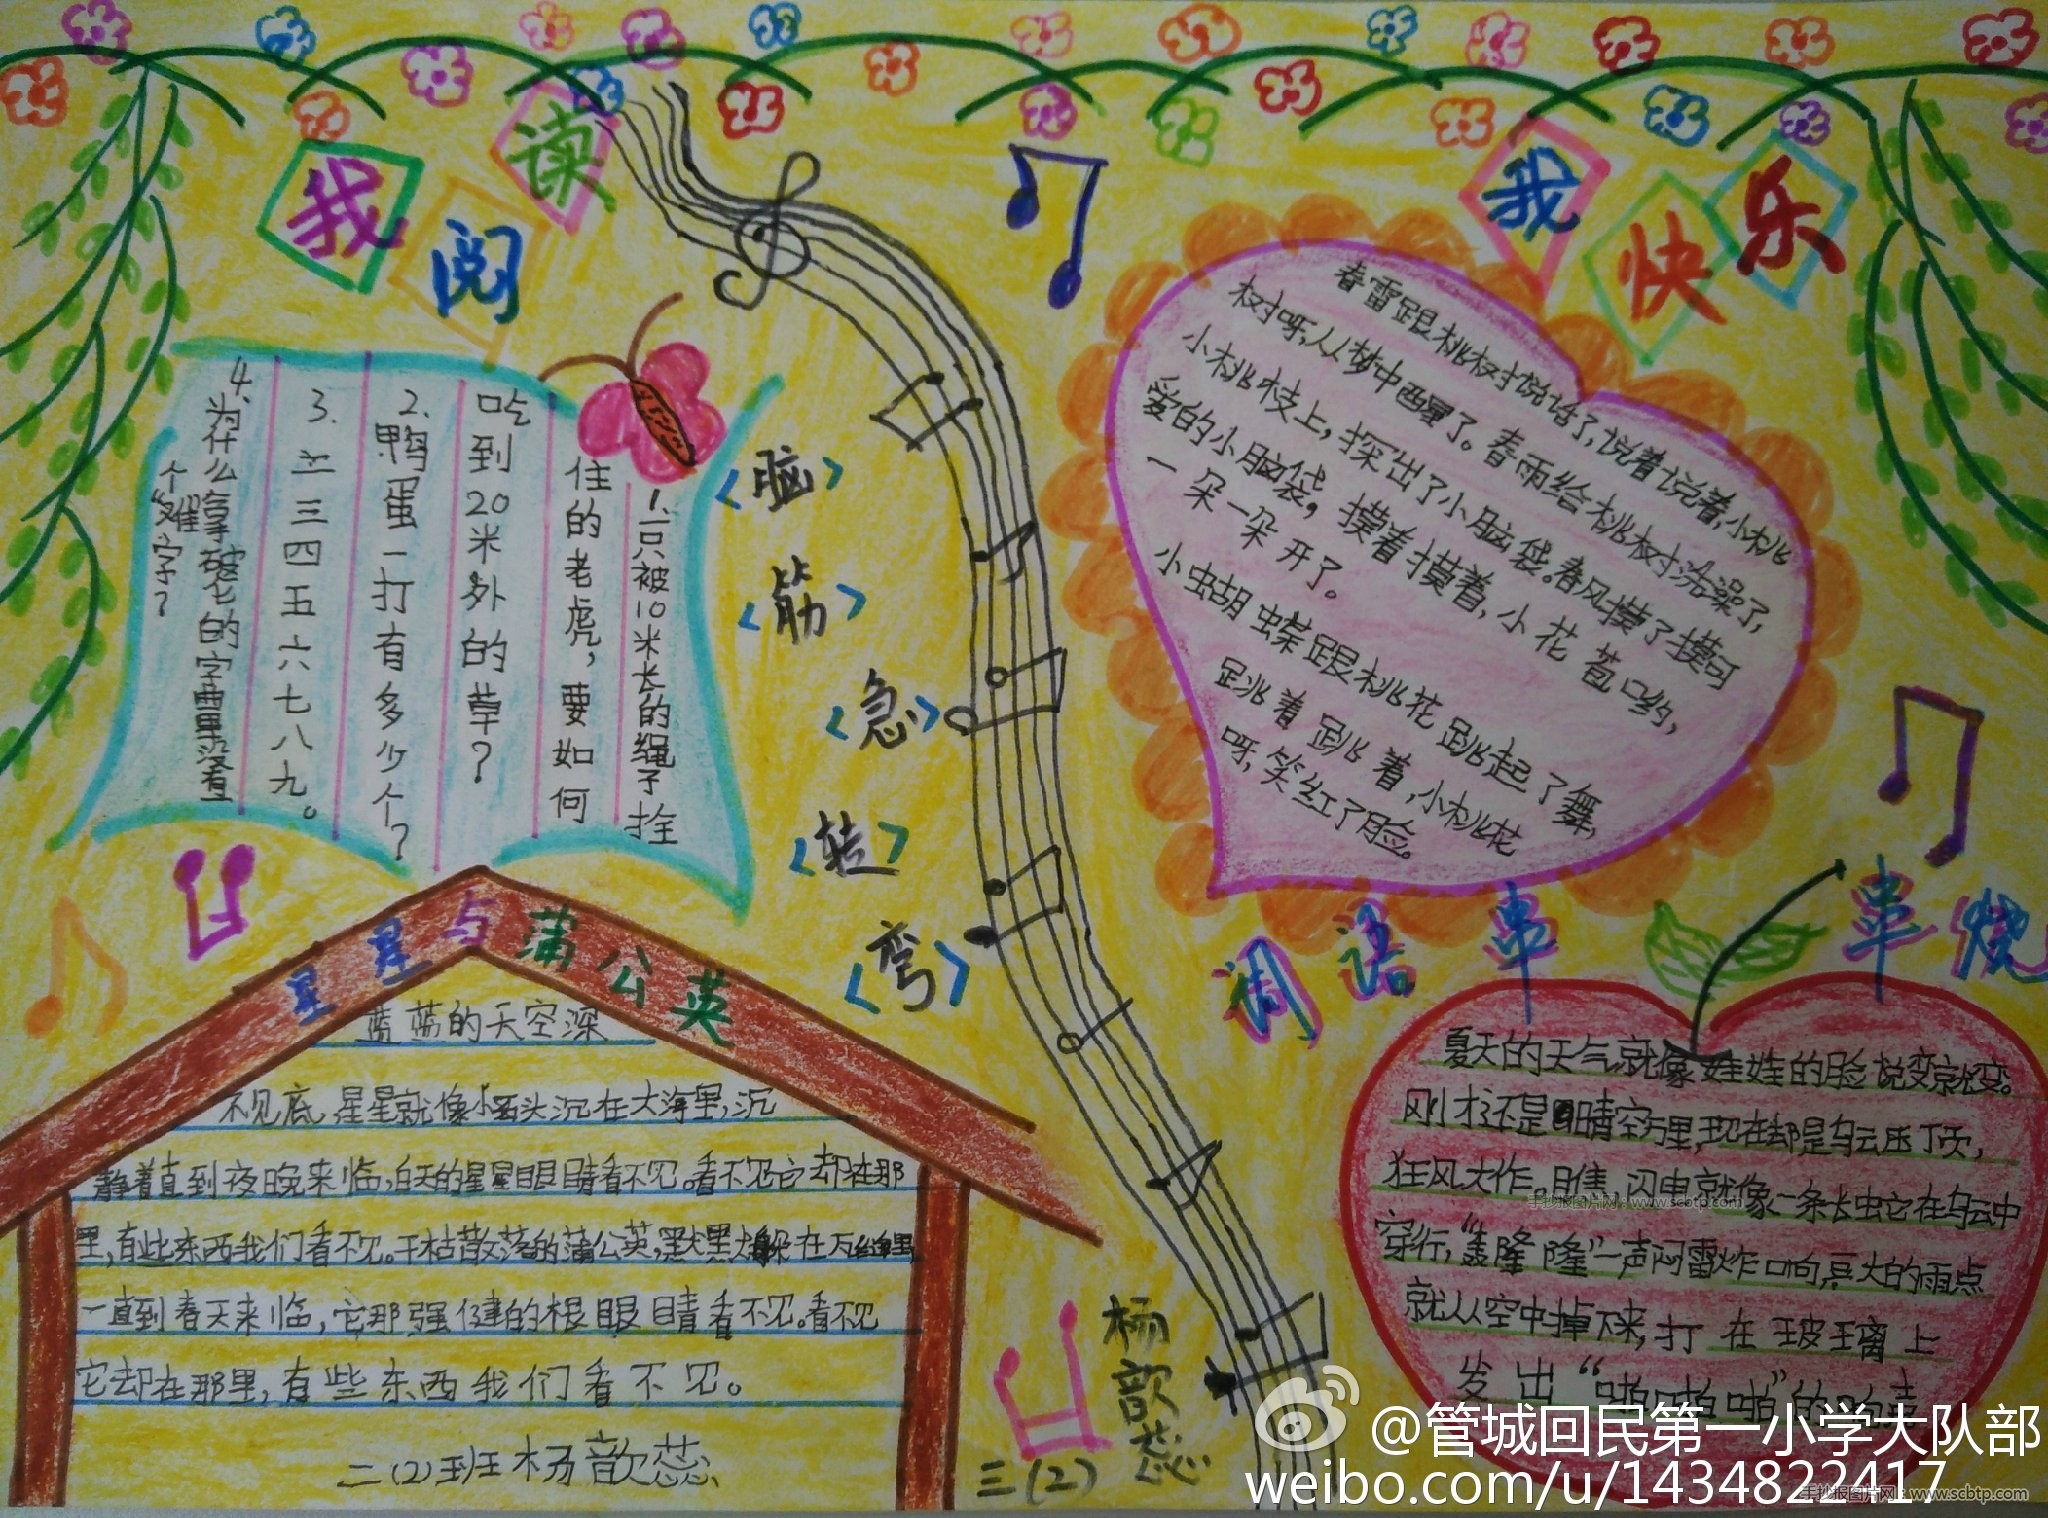 我阅读
我快乐
1.一只被10米长的绳子拴
住的老虎，要如何
吃到20米外的草？
2.鸭蛋一打有多少个？
3.二三四五六七八九。
4.为什么拿破仑的字典里没有
个“难”字？
<脑>
<筋>
<急>
<转>
<弯>
春雷跟桃树说话了，说着说着，小桃
树呀，从梦中西星了。春雨给桃树洗澡了，
小桃枝上，探出了小脑袋。春风摸了摸可
爱的小脑袋，摸着摸着，小花苞哟，
一朵一朵开了。
小蝴蝶跟桃花跳起了舞，
跳着跳着，小桃花
呀，笑红了脸。
星星与蒲公英
蓝蓝的天空深
不见底，星星就像小石头沉在大海里，沉
静着直到夜晚来临，白天的星星眼睛看不见。看不见它却在那
里，有些东西我们看不见。干枯散落的蒲公英，默默躲在瓦缝里，
一直到春天来临，它那强健的根眼睛看不见。看不见
它却在那里，有些东西我们看不见。
二(2)班杨歆蕊
词语串串烧
夏天的天气就像娃娃的脸说变就变。
刚才还是晴空万里，现在却是乌云压顶，
狂风大作。目焦，闪电就像一条长虫它在乌云中
穿行，“轰隆隆”一声闷雷炸响，豆大的雨点
就从空中掉下来，打在玻璃上
发出“啪啪啪”的响声
杨歆蕊
三(2)
手抄报图片网：www.scbtp.com
@管城回民第一小学大队部
weibo.com/u/1434822417
手抄报图片网：www.scbtp.com